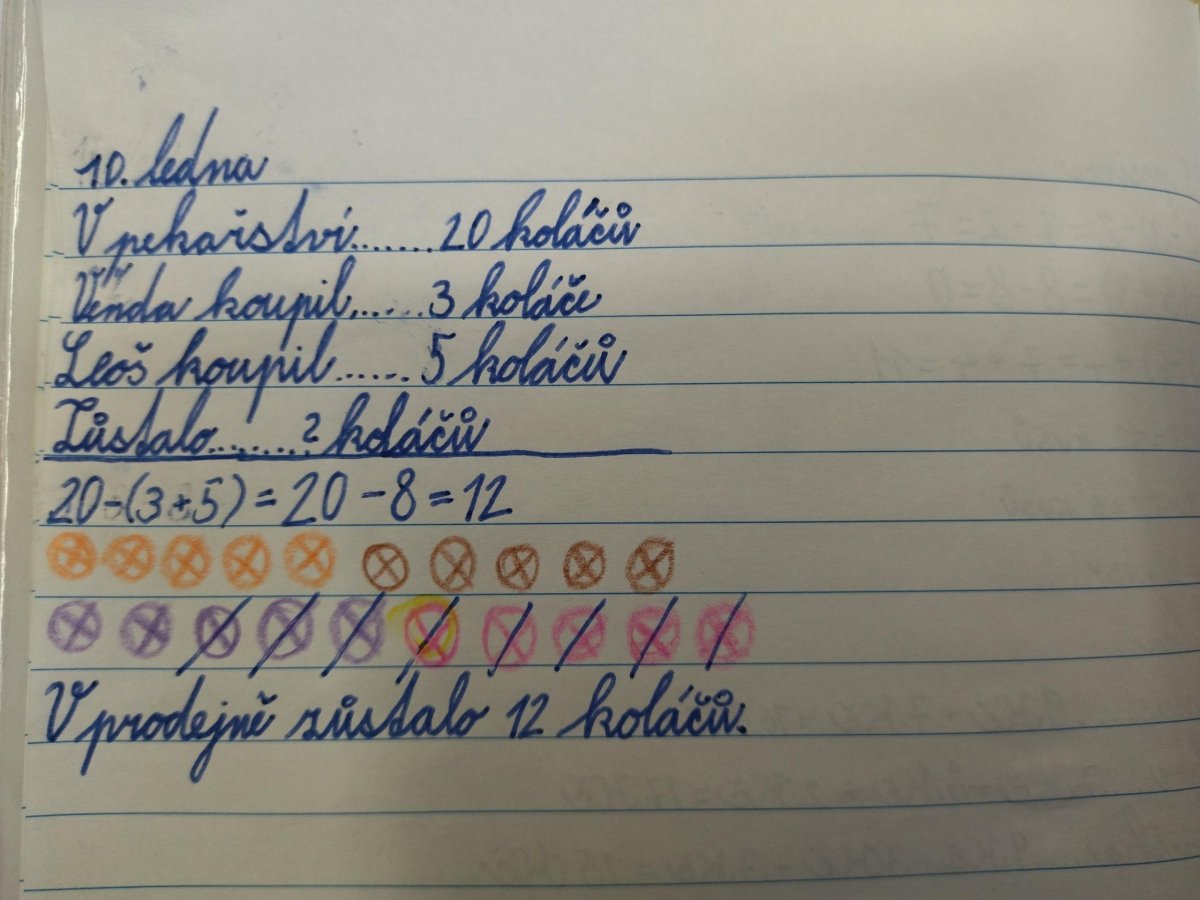 10. ledna
V pekařství.......20 koláčů
Venda koupil......3 koláče
Leoš koupil......5 koláčů
Zůstalo.......? koláčů
20-(3+5)=20-8=12
V prodejně zůstalo 12 koláčů.